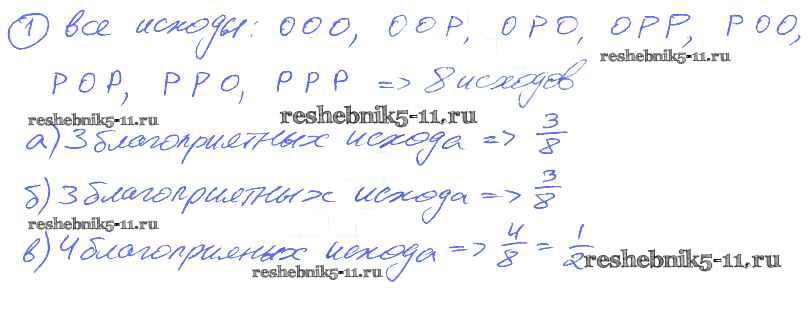 ① все исходы: ООО, ООР, ОРО, ОРР, РОО,
reshebnik5-11.ru
РОР, РРО, РРР => 8 исходов
reshebnik5-11.ru reshebnik5-11.ru
а) 3 благоприятных исхода => 3/8
б) 3 благоприятных исхода => 3/8
reshebnik5-11.ru
в) 4 благоприяных исхода => 4/8 = 1/2
reshebnik5-11.ru reshebnik5-11.ru